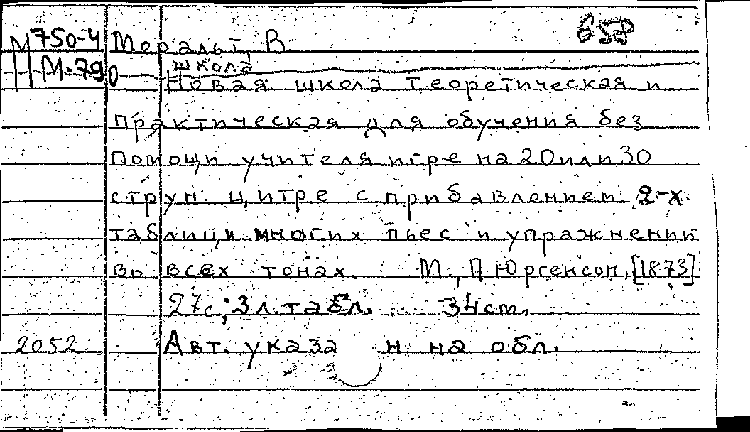 М750-4 Меральт, В 658
М.790 школа
Новая школа теоретическая и
практическая для обучения без
помощи учителя игре на 20 или 30
струн. цитре с прибавлением 2-х
таблиц и многих пьес и упражнений
во всех тонах. М., П. Юргенсон, [1873]
27с; 3 л. табл. 34 cm.
2052 Авт. указан на обл.